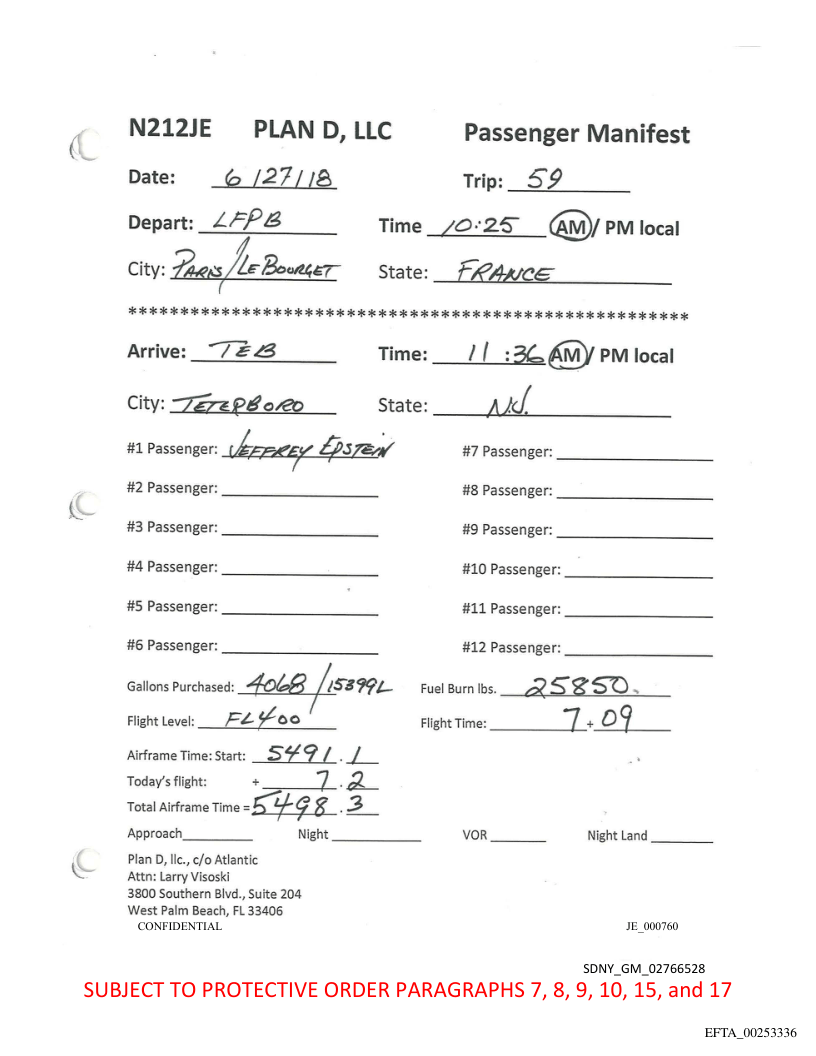 N212JE PLAN D, LLC Passenger Manifest
Date: 6/27/18 Trip: 59
Depart: LFPB Time 10:25 AM/ PM local
City: PARIS/LE BOURGET State: FRANCE
******************************************************
Arrive: TEB Time: 11:36 AM/ PM local
City: TETERBORO State: N.J.
#1 Passenger: JEFFREY EPSTEIN #7 Passenger:
#2 Passenger: #8 Passenger:
#3 Passenger: #9 Passenger:
#4 Passenger: #10 Passenger:
#5 Passenger: #11 Passenger:
#6 Passenger: #12 Passenger:
Gallons Purchased: 4068/15399L Fuel Burn lbs. 25850.
Flight Level: FL400 Flight Time: 7+09
Airframe Time: Start: 5491.1
Today's flight: + 7.2
Total Airframe Time = 5498.3
Approach Night VOR Night Land
Plan D, llc., c/o Atlantic
Attn: Larry Visoski
3800 Southern Blvd., Suite 204
West Palm Beach, FL 33406
CONFIDENTIAL JE_000760
SDNY_GM_02766528
SUBJECT TO PROTECTIVE ORDER PARAGRAPHS 7, 8, 9, 10, 15, and 17
EFTA_00253336